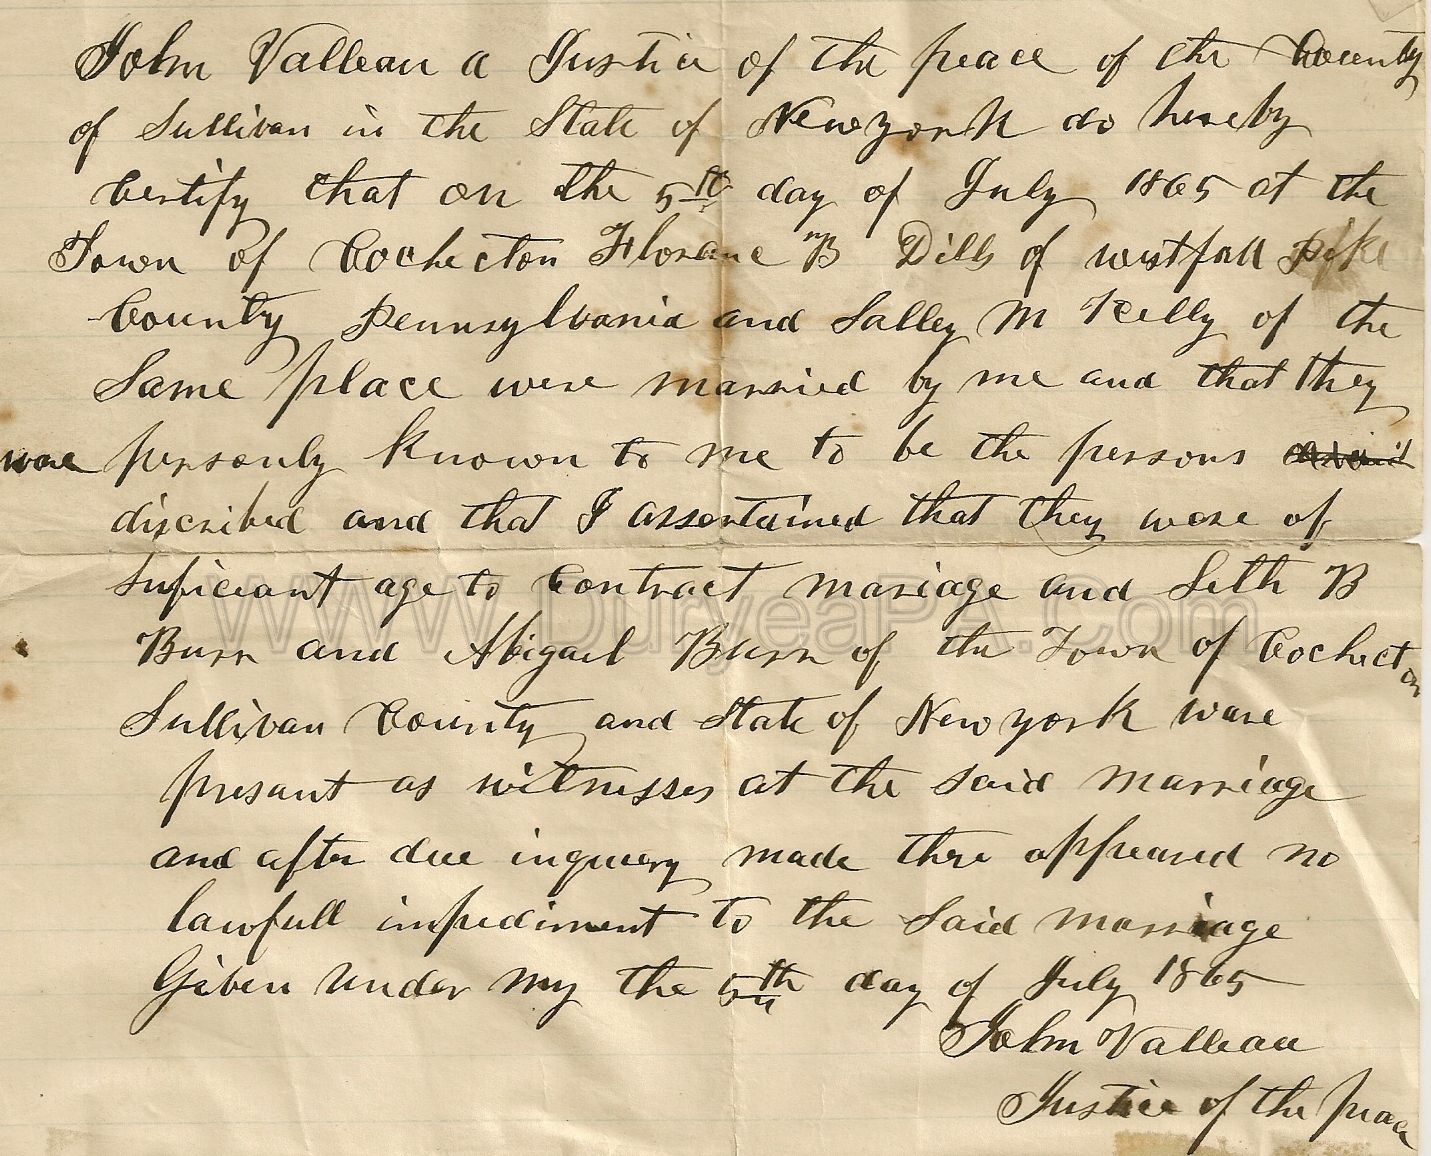 John Valleau a Justice of the peace of the County
of Sullivan in the State of New york do hereby
Certify that on the 5th day of July 1865 at the
Town of Cochecton B Dills of westfall Pike
County Pennsylvania and Salley M Kelly of the
Same place were married by me and that they
ware personly known to me to be the persons
discribed and that I assertained that they were of
suficeant age to Contract mariage and Seth B
Burr and Abigail Burr of the Town of Cochecton
Sullivan County and State of New york ware
presant as witnesses at the said marriage
and after due inquiery made thre appeared no
lawfull impediment to the said marriage
Given under my the 5th day of July 1865
John Valleau
Justice of the peace
www.DuryeaPA.Com